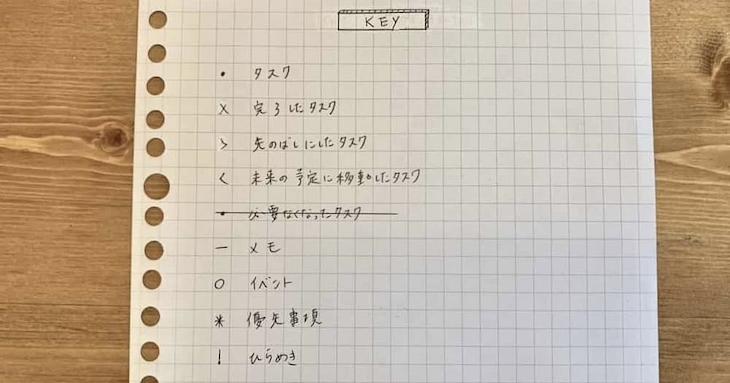 KEY
• タスク
× 完了したタスク
> 先のばしにしたタスク
< 未来の予定に移動したタスク
• 必要なくなったタスク
— メモ
○ イベント
* 優先事項
! ひらめき